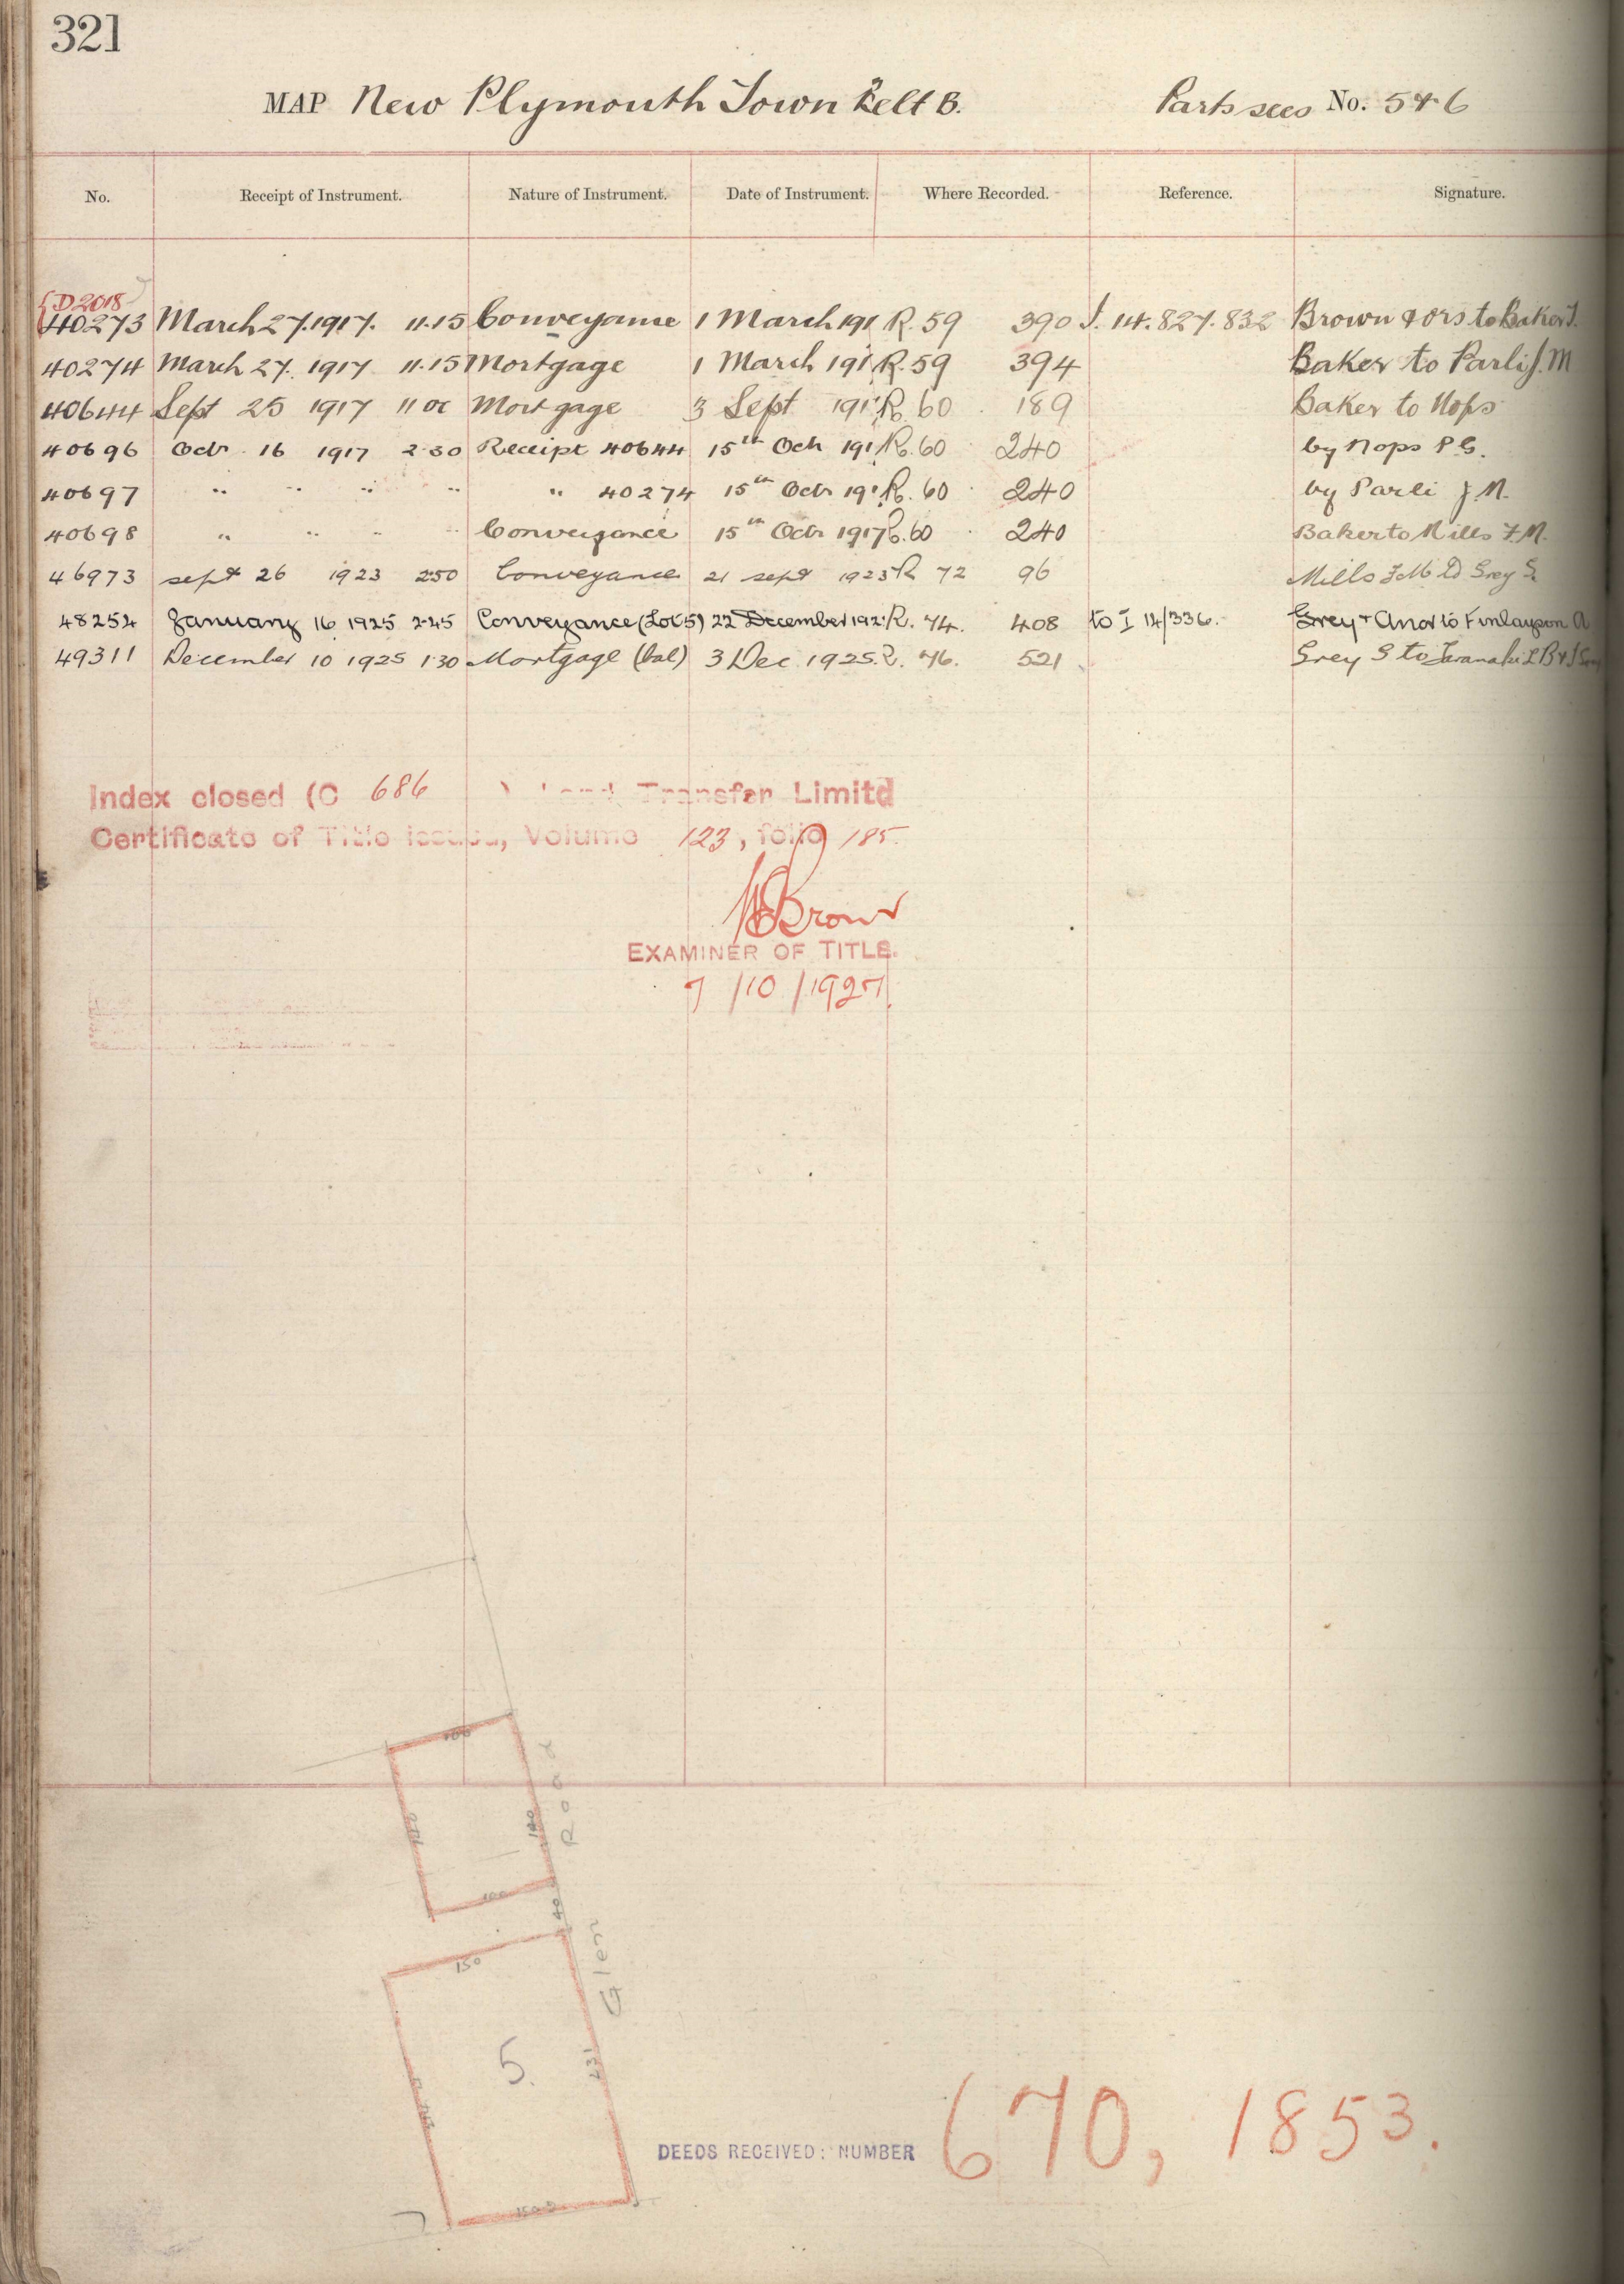 321
MAP New Plymouth Town Belt B. Parts secs No. 5 & 6
No. Receipt of Instrument. Nature of Instrument. Date of Instrument. Where Recorded. Reference. Signature.
D 2018
40273 March 27. 1917. 11.15 Conveyance 1 March 191 R. 59 390 I. 14. 827. 832 Brown & ors to Baker J.
40274 March 27. 1917 11.15 Mortgage 1 March 191 R. 59 394 Baker to Parli J. M
40644 Sept 25 1917 11 oc Mortgage 3 Sept 191 R. 60 189 Baker to Nops
40696 Octr 16 1917 2.30 Receipt 40644 15th Octr 191 R. 60 240 by Nops P. G.
40697 " " " " " 40274 15th Octr 191 R. 60 240 by Parli J. M.
40698 " " " " Conveyance 15th Octr 1917 R. 60 240 Baker to Mills F. M.
46973 Sept 26 1923 2.50 Conveyance 21 Sept 1923 R 72 96 Mills F M to Grey S
48254 January 16 1925 2.45 Conveyance (Lot 5) 22 December 192 R. 74. 408 to I 14/336. Grey & Anor to Finlayson A
49311 December 10 1925 1.30 Mortgage (bal) 3 Dec 1925 R. 76. 521 Grey S to Taranaki L B & I Socy
Index closed (C 686 ) Land Transfer Limitd
Certificate of Title issued, Volume 123, folio 185.
Brown
EXAMINER OF TITLE.
7/10/1927.
100
Road
180
100
40
150
Glen
5.
DEEDS RECEIVED: NUMBER 670, 1853.